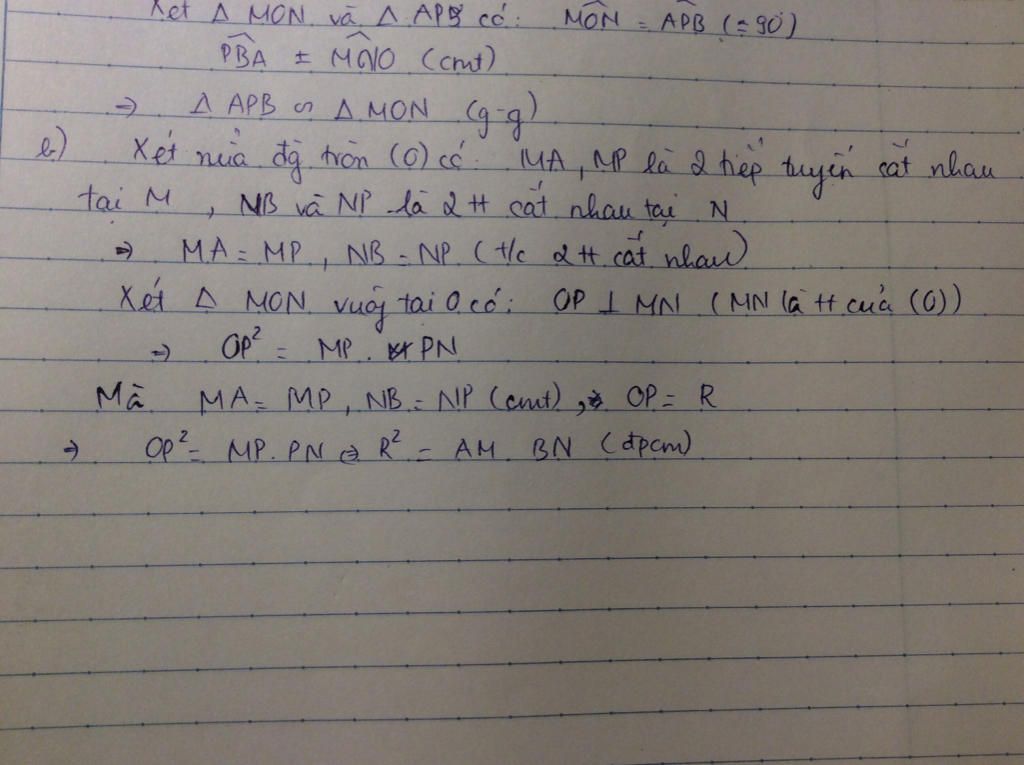 Xét Δ MON và Δ APB có: MÔN = APB (= 90°)
PBA = MNO (cmt)
=> Δ APB ∽ Δ MON (g-g)
b) Xét nửa đg tròn (O) có: MA, MP là 2 tiếp tuyến cắt nhau
tại M, NB và NP là 2 tt cắt nhau tại N
=> MA = MP, NB = NP (t/c 2 tt cắt nhau)
Xét Δ MON vuôg tại O có: OP ⊥ MN (MN là tt của (O))
=> OP² = MP. PN
Mà MA = MP, NB = NP (cmt), OP = R
=> OP² = MP. PN <=> R² = AM. BN (đpcm)